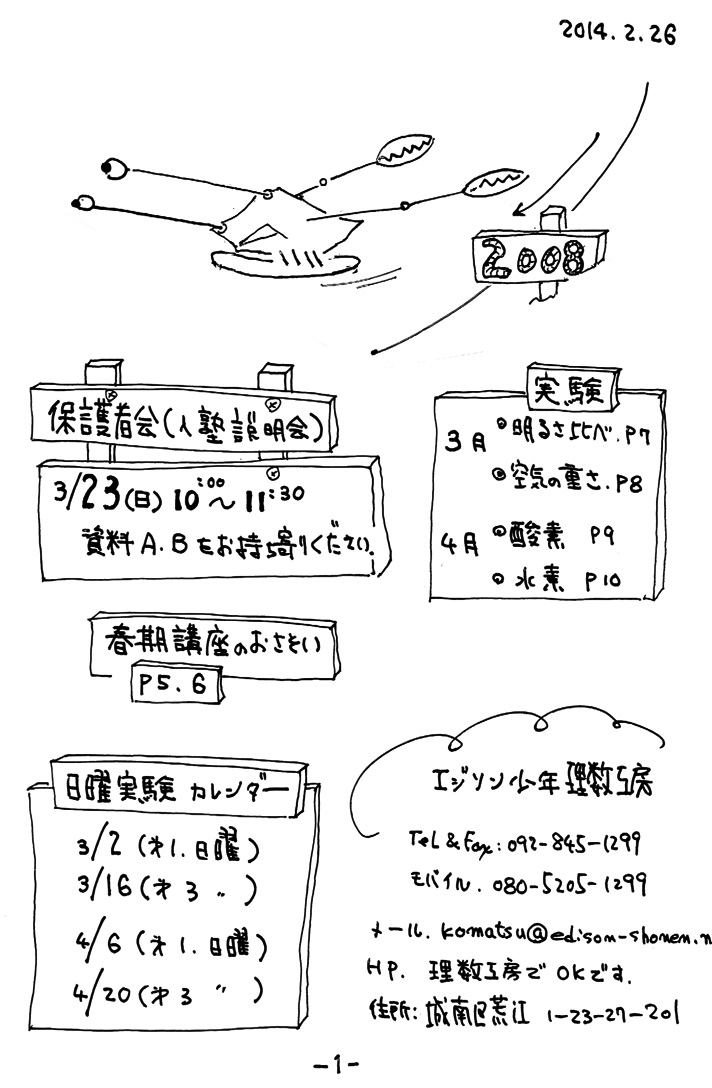 2014.2.26
2008
保護者会(入塾説明会)
3/23(日) 10:00〜11:30
資料A.Bをお持ち寄りください.
実験
3月 ◎明るさ比べ.P7
◎空気の重さ.P8
4月 ◎酸素 P9
◎水素 P10
春期講座のおさそい
P5.6
日曜実験 カレンダー
3/2 (才1.日曜)
3/16 (才3 〃 )
4/6 (才1.日曜)
4/20 (才3 〃 )
エジソン少年理数工房
Tel & Fax: 092-845-1299
モバイル. 080-5205-1299
メール. komatsu@edison-shonen.n
HP. 理数工房でOKです.
住所: 城南区荒江 1-23-27-201
-1-